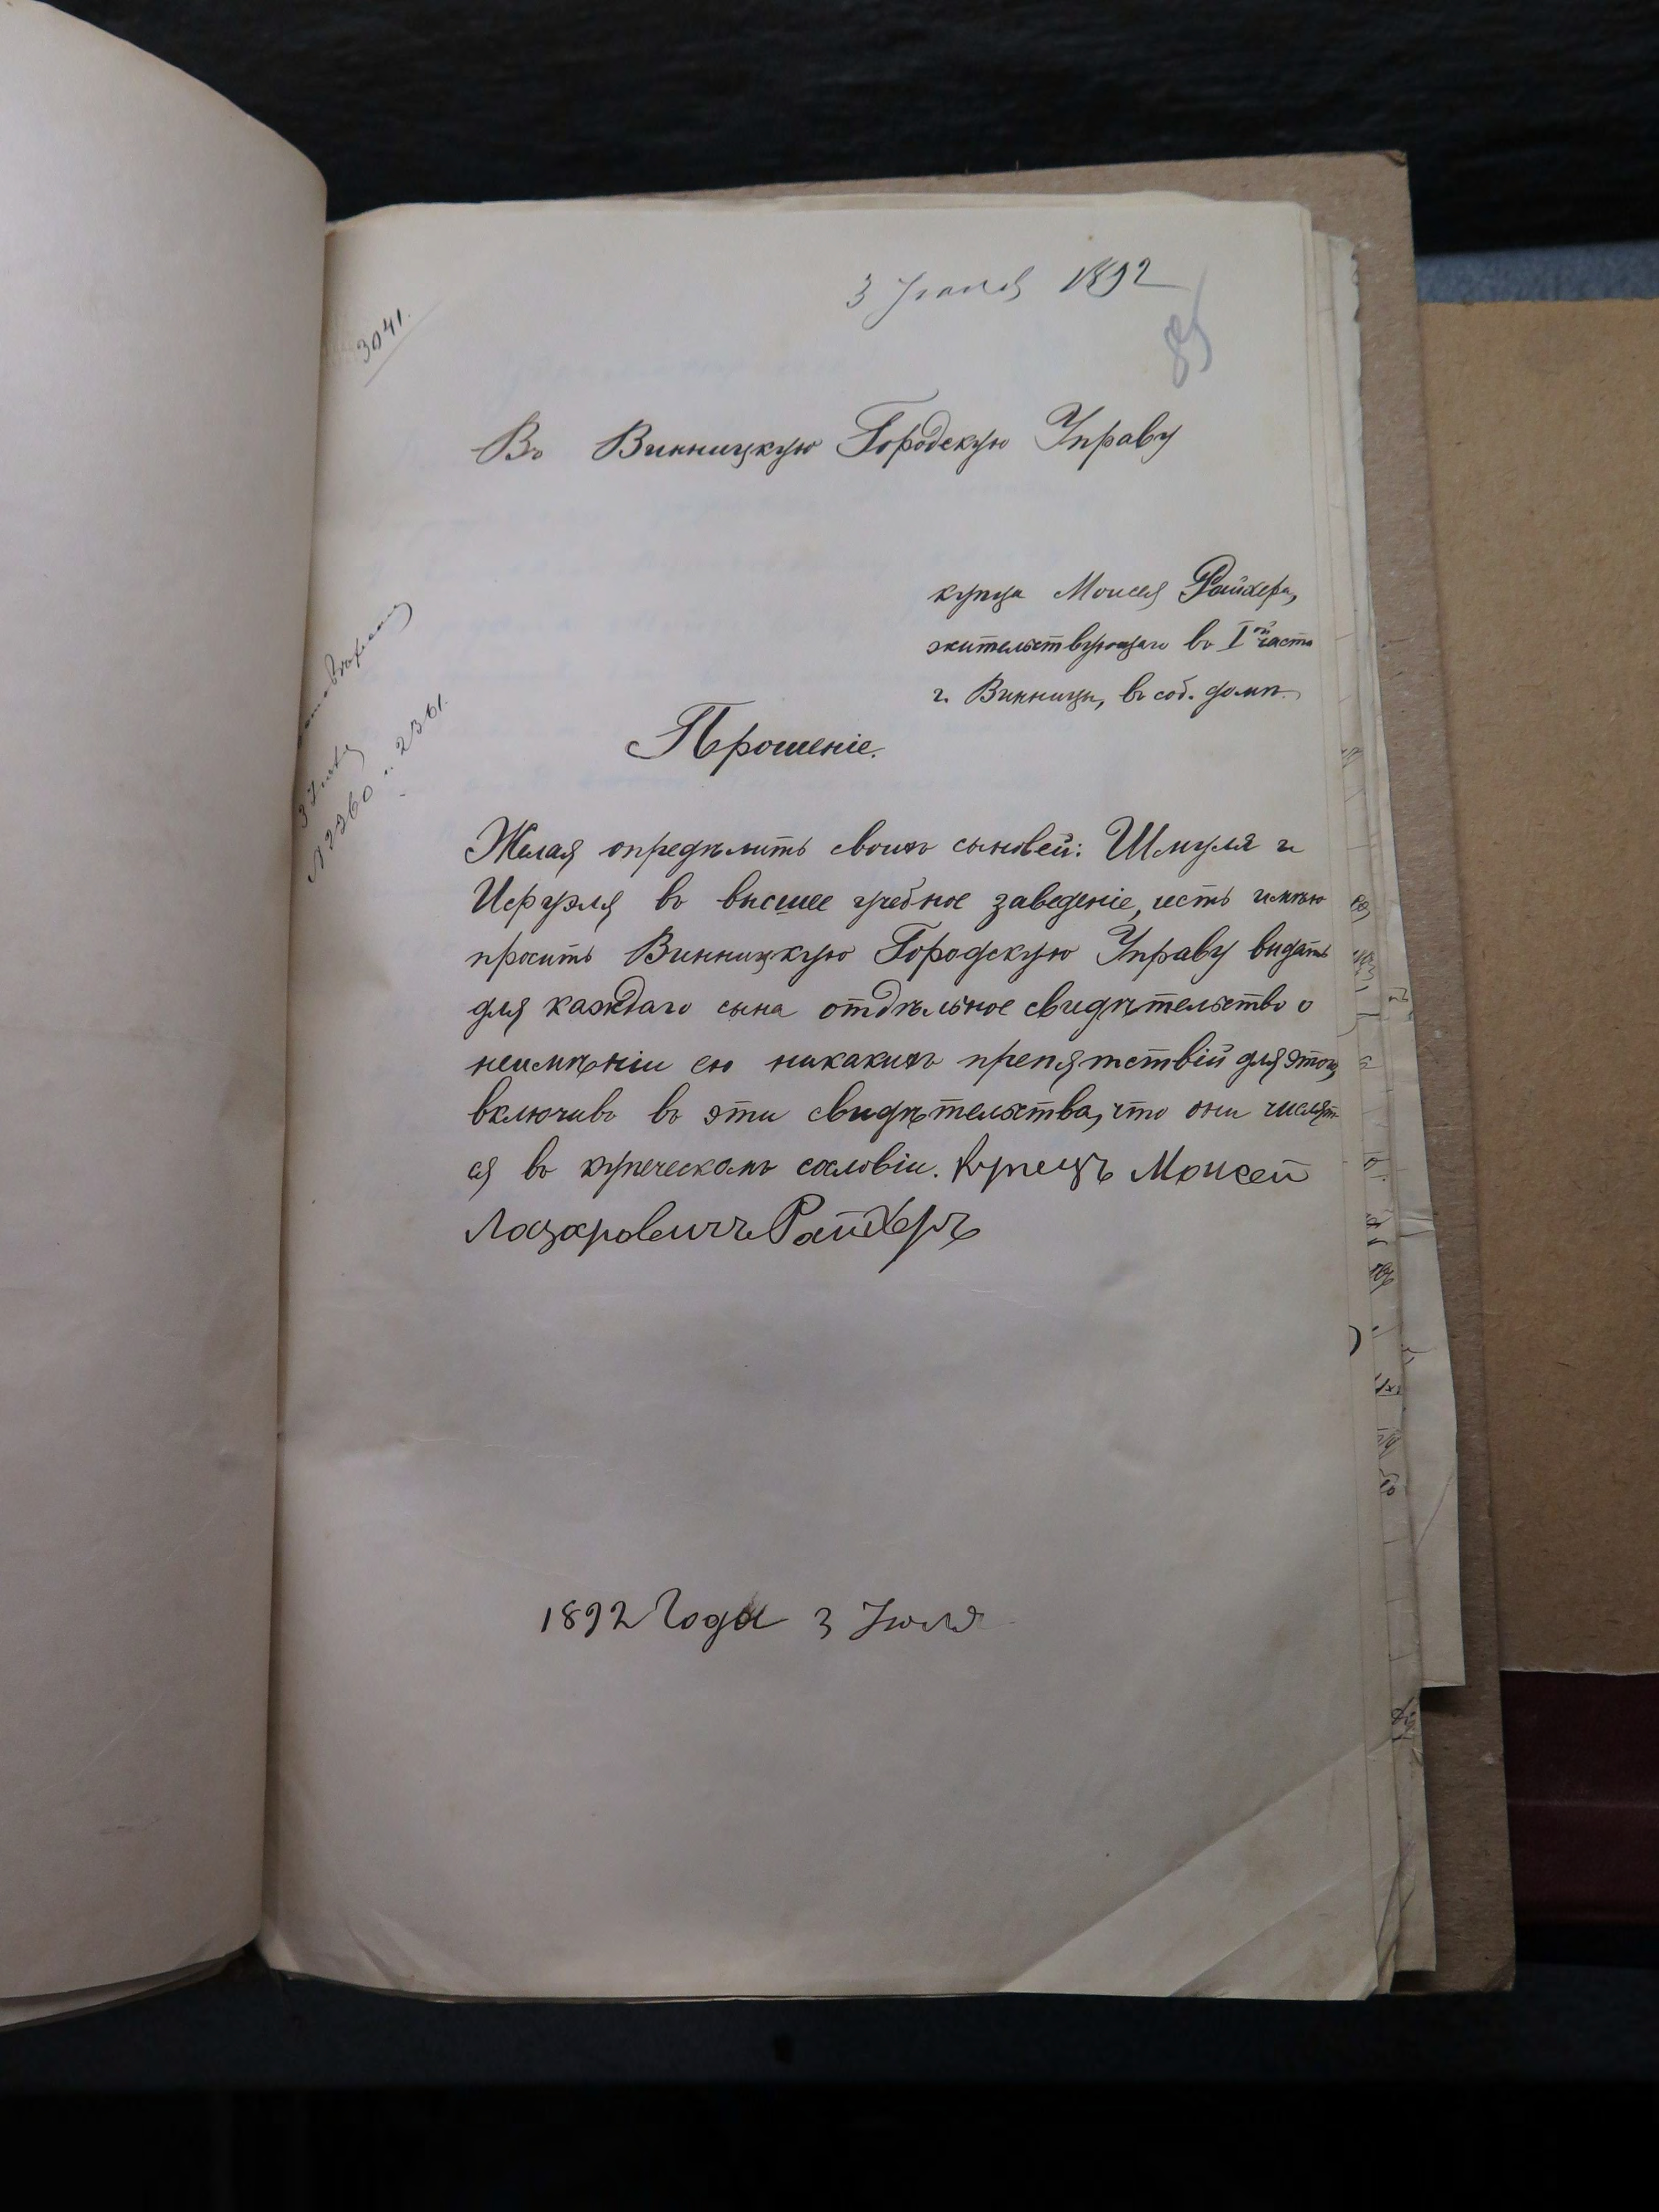 3 Іюля 1892
85
3041.
Въ Винницкую Городскую Управу
купца Моисея Райхера,
жительствующаго въ I ой части
г. Винницы, въ соб. домѣ.
Прошеніе.
3 Іюля
№ 2360 и 2361.
Желая опредѣлить своихъ сыновей: Шмуля и
Исруэля въ высшее учебное заведеніе, честь имѣю
просить Винницкую Городскую Управу видать
для каждаго сына отдѣльное свидѣтельство о
неимѣніи ею никакихъ препятствій для этого,
включивъ въ эти свидѣтельства, что они числят-
ся въ купеческомъ сословіи. Купецъ Моисей
Лазаровичъ Райхеръ
1892 Года 3 Іюля